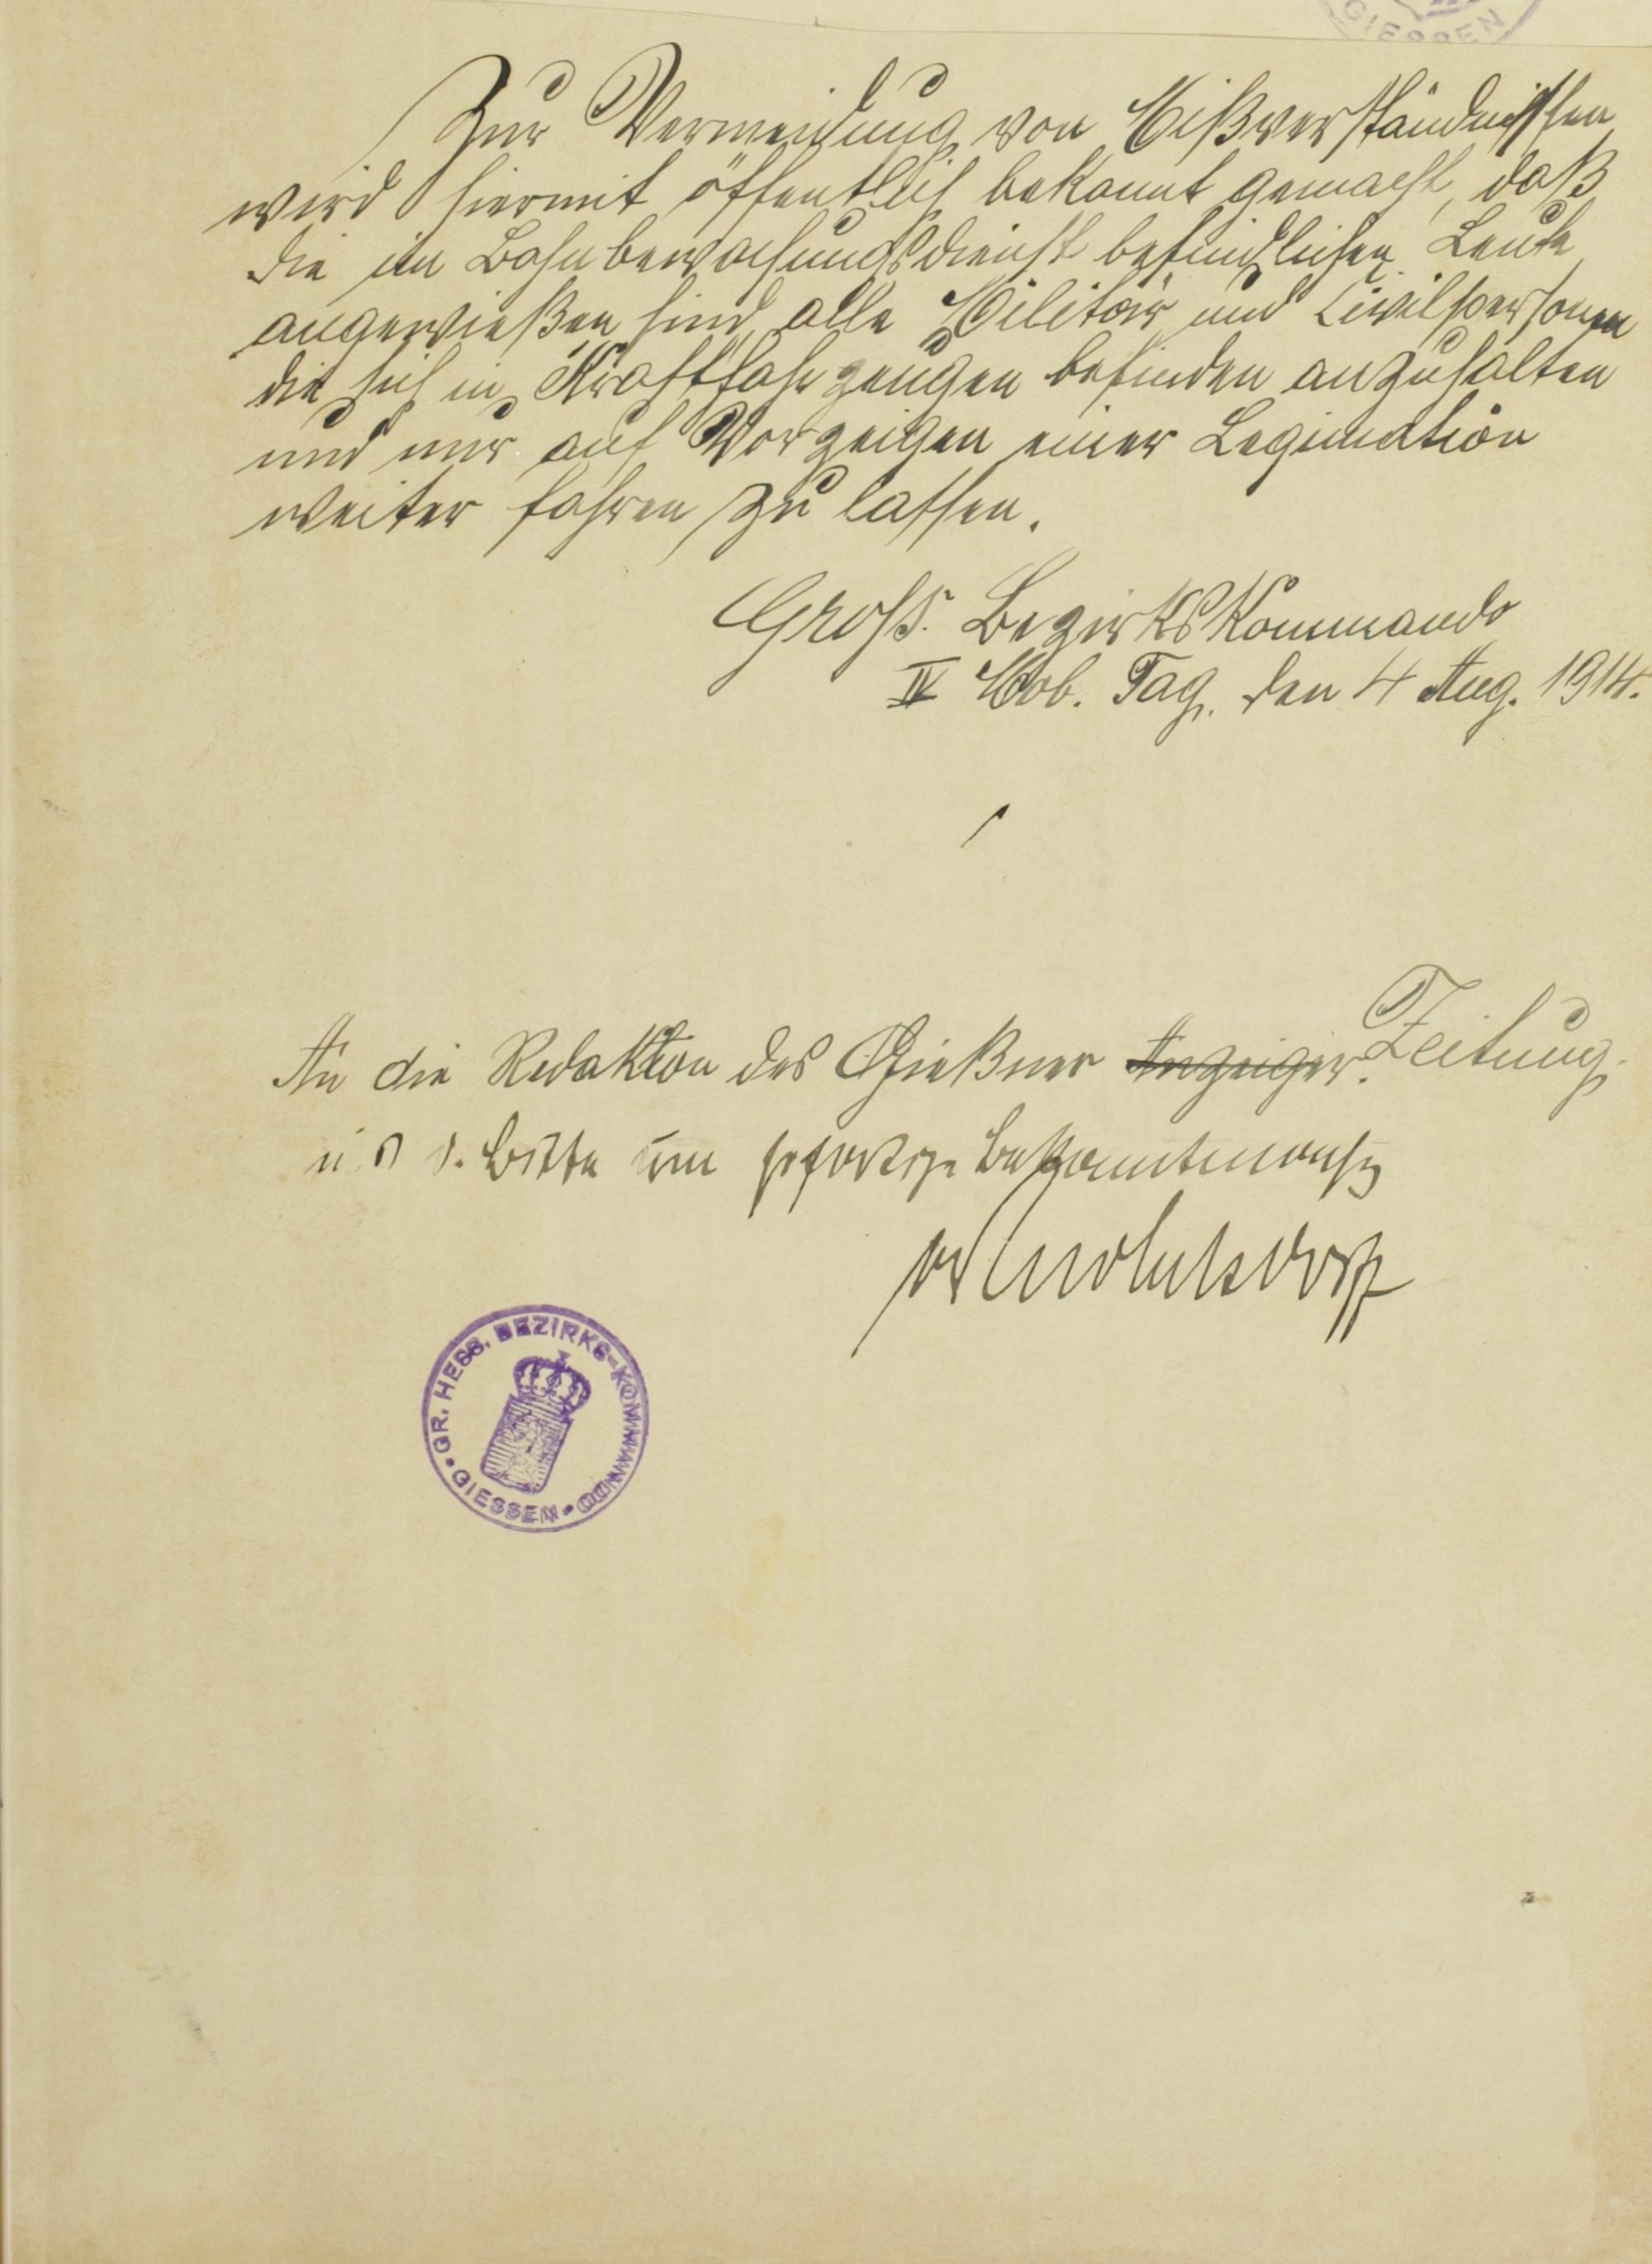 GIESSEN
Zur Vermeidung von Mißverständnissen
wird hiermit öffentlich bekannt gemacht, daß
die im Bahnbewachungsdienst befindlichen Leute
angewießen sind alle Militär und Civilpersonen
die sich in Kraftfahrzeugen befinden anzuhalten
und nur auf Vorzeigen einer Legimation
weiter fahren zu lassen.
Großh. Bezirkskommando
IV Mob. Tag, den 4 Aug. 1914.
An die Redaktion des Gießner Anzeiger. Zeitung.
m. d. Bitte um sofortige Bekanntmachg
GR. HESS. BEZIRKS-KOMMANDO
GIESSEN